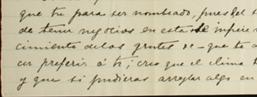 que tu para ser nombrado, pues del s
de tener negocios en este se infiere
cimiento de las gentes de - que te a
en preferir á ti; creo que el clima t
y que si pudieras arreglar algo en